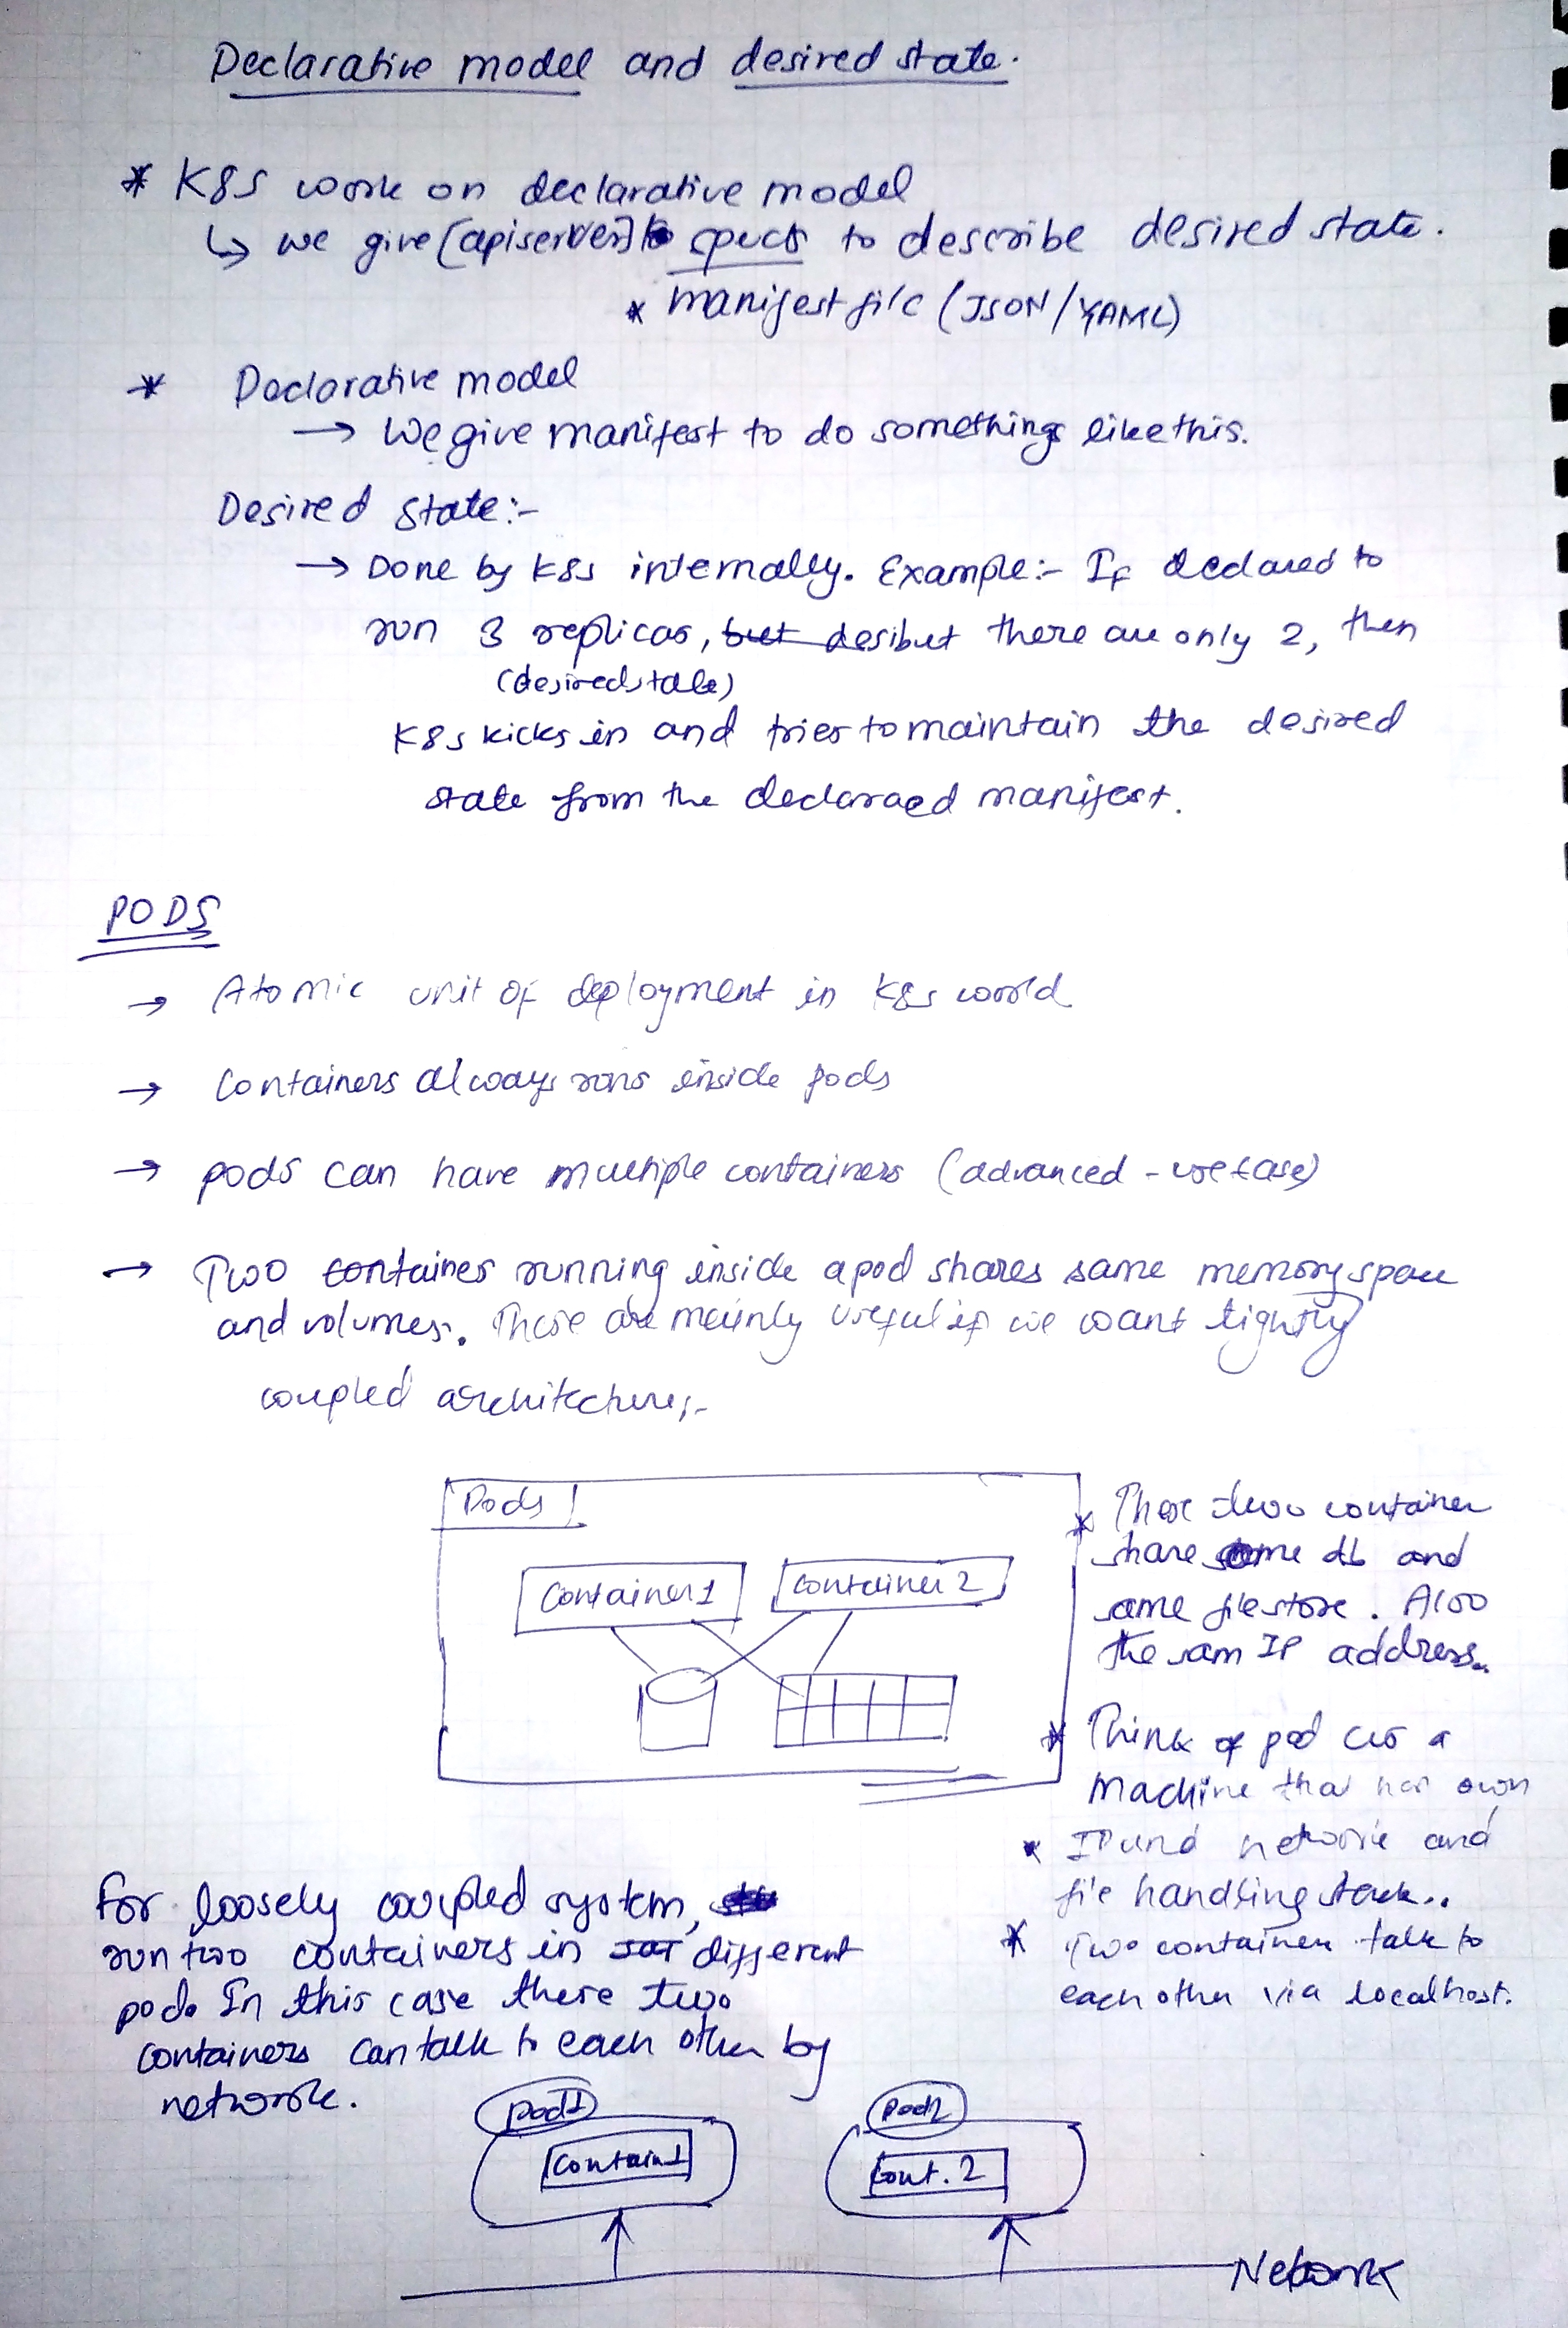 Declarative model and desired state.
* K8S work on declarative model
↳ we give [apiserver] specs to describe desired state.
* manifest file (JSON/YAML)
* Declarative model
→ We give manifest to do somethings like this.
Desired state:-
→ Done by K8s internally. Example:- If declared to
run 3 replicas, but desibut there are only 2, then
(desired state)
K8s kicks in and tries to maintain the desired
state from the declaraed manifest.
PODS
→ Atomic unit of deployment in K8s world
→ Containers always runs inside pods
→ pods can have multiple containers (advanced - usecase)
→ Two container running inside a pod shares same memory space
and volumes. These are mainly useful if we want tightly
coupled architecture;-
Pods
Container1
Container 2
* These two container
share same db and
same filestore. Also
the sam IP address.
* Think of pod as a
Machine that has own
* IP and network and
file handling stack..
* Two container talk to
each other via localhost.
For loosely coupled system,
run two containers in different
pod. In this case these two
containers can talk to each other by
network.
pod1
Contain1
pod2
Cont. 2
Network